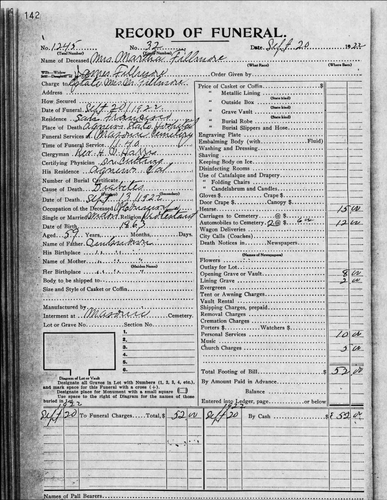 142
RECORD OF FUNERAL.
No. 1243 No. 32 Date, Sept 20 1922
(Total Number) (Yearly Number)
Name of Deceased Mrs. Martha Fillmore
(What Race) (Where Born)
Wife James Fillmore Order Given by
Charge to Estate Mrs. M. Fillmore
Address
How Secured
Date of Funeral Sept 20 1922
Residence San Francisco
Place of Death Agnews State Hospital
Funeral Services at Masonic Cemetery
Time of Service 11:40
Clergyman Rev. H.
Certifying Physician
His Residence Agnews Cal
Number of Burial Certificate
Cause of Death Diabetes
Date of Death Sept 17 1922
Occupation of the Deceased
Single or Married Religion Protestant
Date of Birth 1863
Aged 59 Years Months, Days.
Name of Father Unknown
His Birthplace
Name of Mother
(Maiden Name)
Her Birthplace
Body to be shipped to
Size and Style of Casket or Coffin
Manufactured by
Interment at Masonic Cemetery.
Lot or Grave No. Section No.
1
2
3
4
5
6
Diagram of Lot or Vault
Designate all Graves in Lot with Numbers (1, 2, 3, 4, etc.),
and mark space for this Funeral with a cross (+).
Designate place for Monument with a small square
Use space to the right of Diagram for the names of those
buried in Lot.
Price of Casket or Coffin
" Metallic Lining
(State kind)
" Outside Box
(State kind)
" Grave Vault
(State kind)
" Burial Robe
" Burial Slippers and Hose
Engraving Plate
Embalming Body (with Fluid)
Washing and Dressing
Shaving
Keeping Body on Ice
Disinfecting Rooms
Use of Catafalque and Drapery
" Folding Chairs
" Candelabrum and Candles
Gloves $ Crape $
Door Crape $ Canopy $
Hearse 15 00
Carriages to Cemetery @ $
Automobiles to Cemetery 2 @ $ 6 00 12 00
Wagon Deliveries
City Calls (Coaches)
Death Notices in Newspapers.
(Names of Newspapers)
Flowers
Outlay for Lot
Opening Grave or Vault 8 00
Lining Grave 2 00
Evergreen
Tent or Awning Charges
Vault Rental
Shipping Charges, prepaid
Removal Charges
Cremation Charges
Porters $ Watchers $
Personal Services 10 00
Music
Church Charges 5 00
Total Footing of Bill $ 52 00
By Amount Paid in Advance
Balance
Entered into Ledger, page or below.
1922 1922
Sept 20 To Funeral Charges Total, $ 52 00 Sept 20 By Cash $ 52 00
Names of Pall Bearers